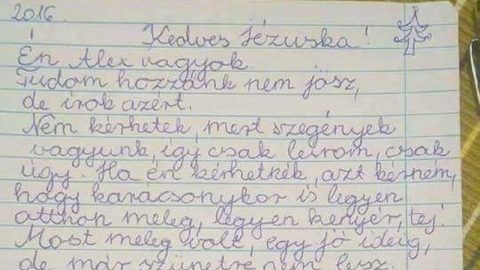 2016.
Kedves Jézuska!
Én Alex vagyok.
Tudom hozzánk nem jösz,
de írok azért.
Nem kérhetek, mert szegények
vagyunk, így csak leírom, csak
úgy. Ha én kérhetnék, azt kérném,
hogy karácsonykor is legyen
otthon meleg, legyen kenyér, tej!
Most meleg volt, egy jó ideig,
de már szünetre nem lesz,